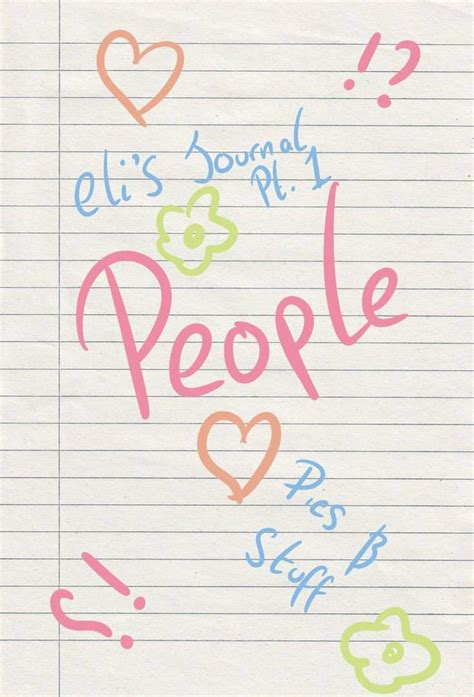 !?
eli's Journal
Pt. 1
People
Pics &
Stuff
?!